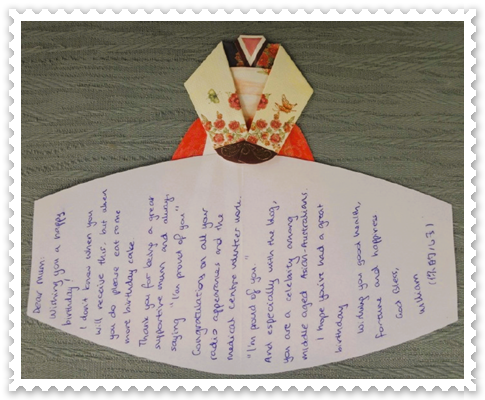 Dear mum,
Wishing you a happy
birthday!
I don't know when you
will receive this. but when
you do please eat some
more birthday cake
Thank you for being a great
supportive mum and always
saying "I'm proud of you"
Congratulations on all your
radio appearances and the
medical centre volunteer work.
"I'm proud of you."
And especially with the blog,
you are a celebrity among
middle aged Asian-Australians.
I hope you've had a great
birthday
Wishing you good health,
fortune and happiness
God bless,
William